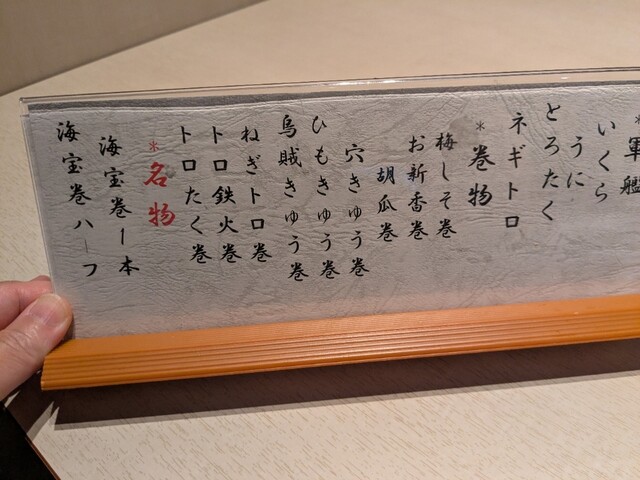 *軍艦
いくら
うに
とろたく
ネギトロ
*巻物
梅しそ巻
お新香巻
胡瓜巻
穴きゅう巻
ひもきゅう巻
烏賊きゅう巻
ねぎトロ巻
トロ鉄火巻
トロたく巻
*名物
海宝巻一本
海宝巻ハーフ